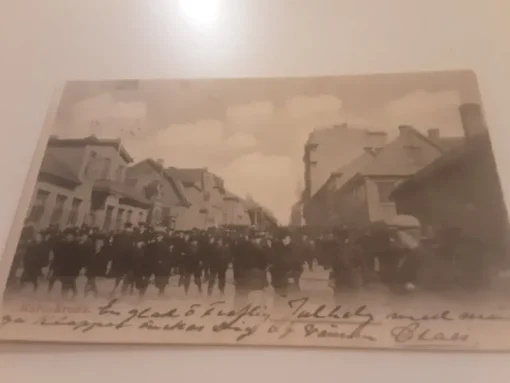 En glad & treflig Julhelg med mån-
ga knäppar önskas Dig af vännen Claës